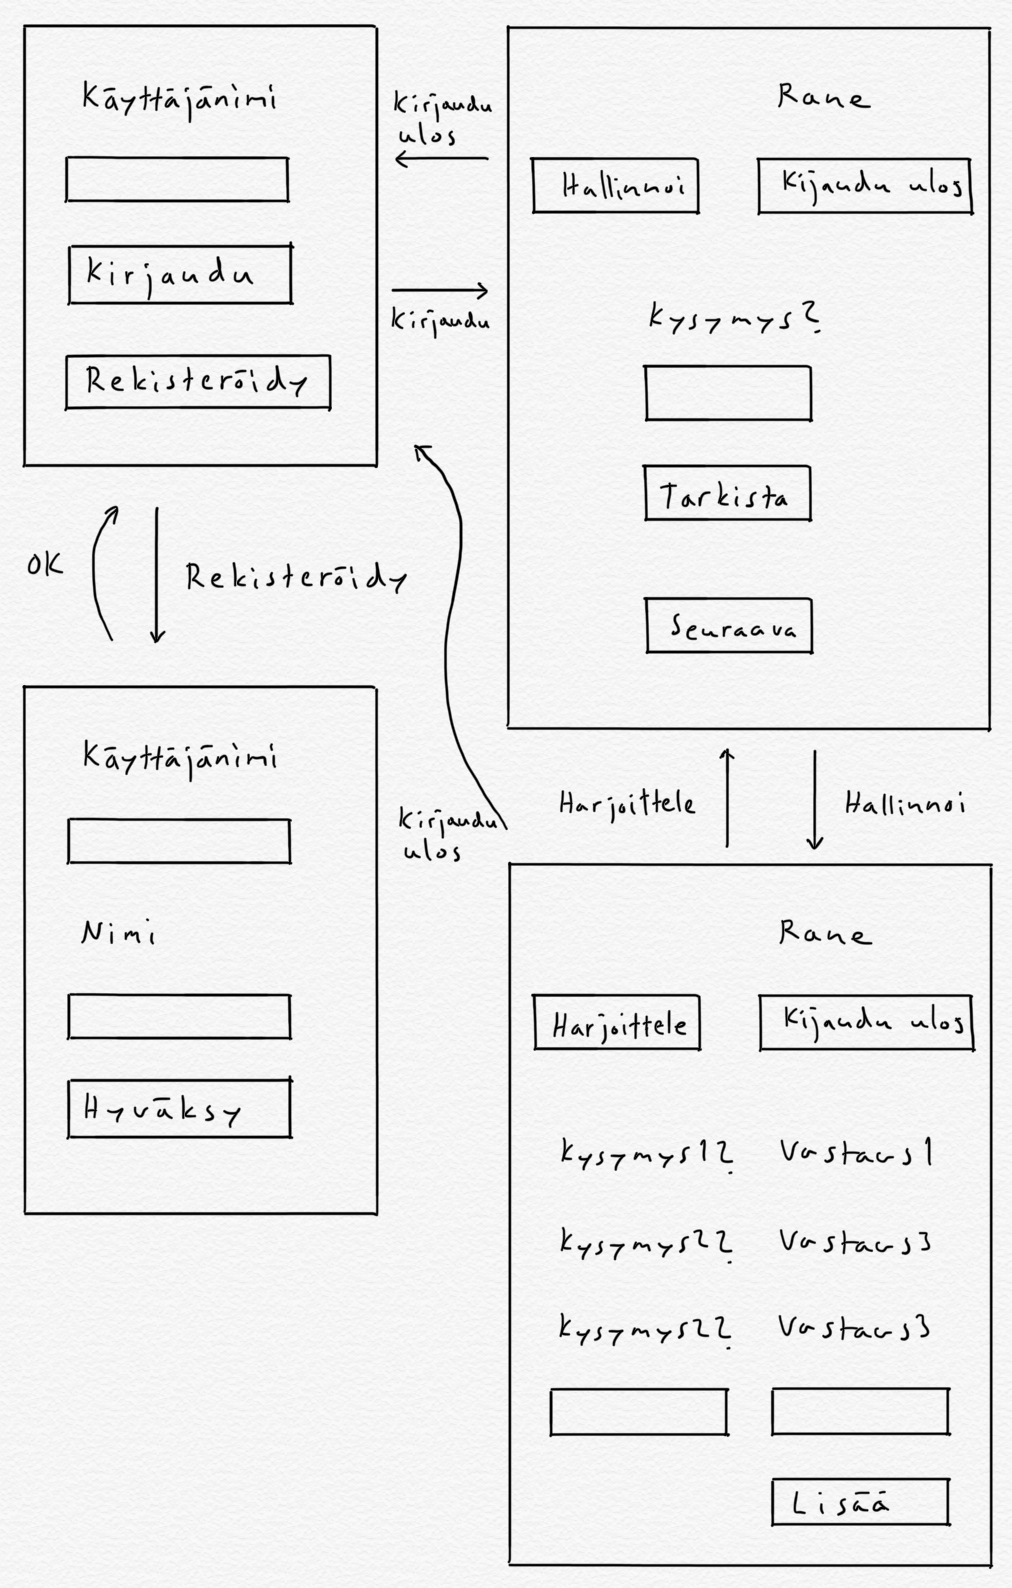 Käyttäjänimi
Kirjaudu
Rekisteröidy
Kirjaudu
ulos
Kirjaudu
Rane
Hallinnoi
Kijaudu ulos
Kysymys?
Tarkista
Seuraava
OK
Rekisteröidy
Käyttäjänimi
Nimi
Hyväksy
Kirjaudu
ulos
Harjoittele
Hallinnoi
Rane
Harjoittele
Kijaudu ulos
Kysymys1? Vastaus1
Kysymys2? Vastaus3
Kysymys2? Vastaus3
Lisää